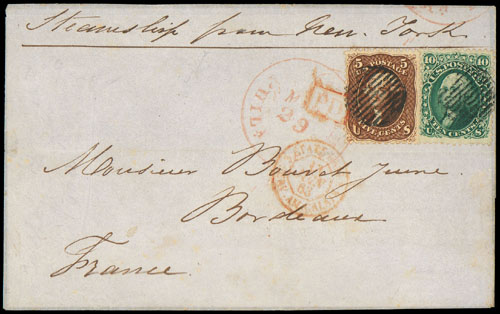 Steamship from New York
5 5
U.S. POSTAGE
FIVE CENTS
U S
10 10
U.S. POSTAGE
TEN CENTS
U S
PHILA
29
Monsieur Bouvet Jeune
Bordeaux
France.